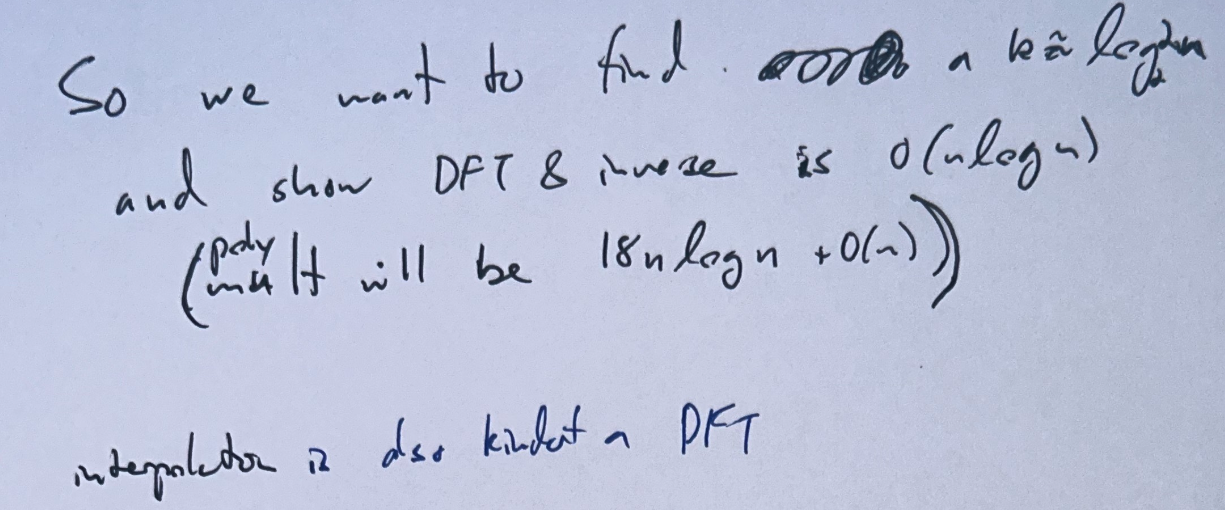 So we want to find a k ≈ log₂ 2n
and show DFT & inverse is O(n log n)
(poly mult will be 18n log n + O(n))
interpolation is also kindof a DFT